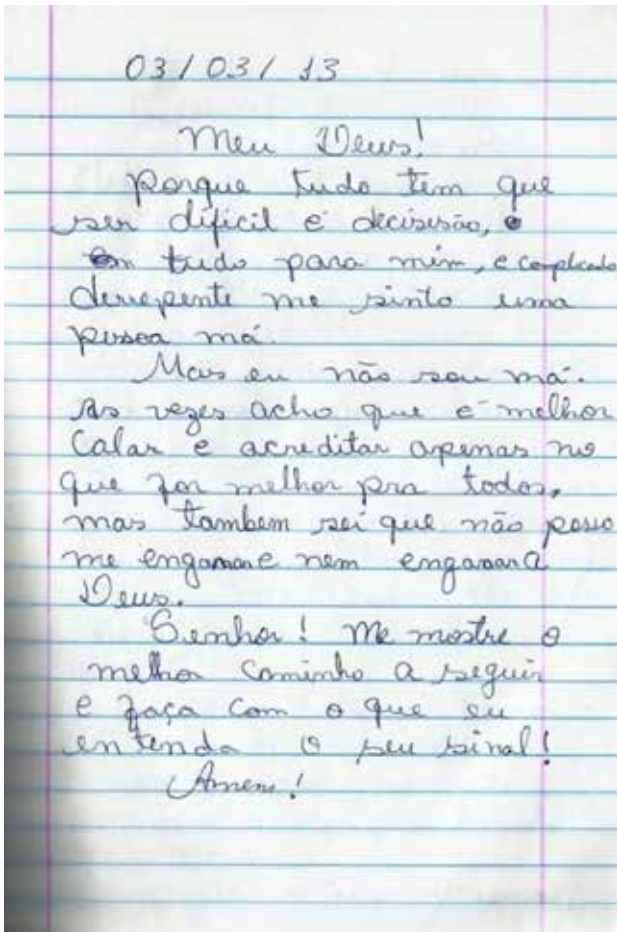 03/03/13
Meu Deus!
Porque tudo tem que
ser dificil e decisisão, e
em tudo para mim, e complicado
derrepente me sinto uma
pessoa má.
Mais eu não sou má.
As vezes acho que é melhor
Calar e acreditar apenas no
que for melhor pra todos,
mas tambem sei que não posso
me enganar e nem enganar a
Deus.
Senhor! Me mostre o
melhor caminho a seguir
e faça com o que eu
entenda o seu sinal!
Amem!